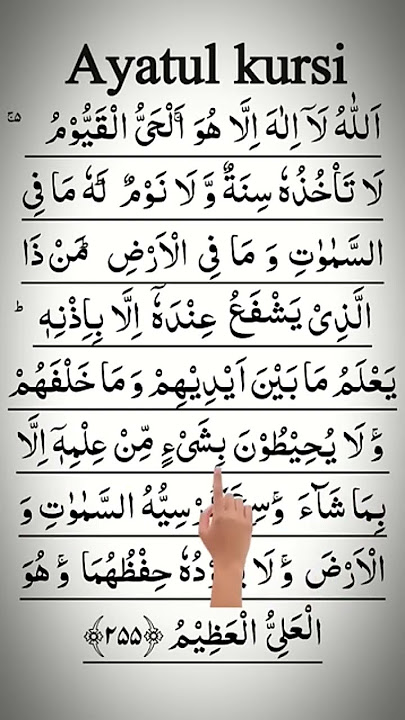 Ayatul kursi
اَللّٰهُ لَاۤ اِلٰهَ اِلَّا هُوَ ۚ اَلْحَیُّ الْقَیُّوْمُ ۚ۬
لَا تَاْخُذُهٗ سِنَةٌ وَّ لَا نَوْمٌ ؕ لَهٗ مَا فِی
السَّمٰوٰتِ وَ مَا فِی الْاَرْضِ ؕ مَنْ ذَا
الَّذِیْ یَشْفَعُ عِنْدَهٗۤ اِلَّا بِاِذْنِهٖ ؕ
یَعْلَمُ مَا بَیْنَ اَیْدِیْهِمْ وَ مَا خَلْفَهُمْ
ۚ وَ لَا یُحِیْطُوْنَ بِشَیْءٍ مِّنْ عِلْمِهٖۤ اِلَّا
بِمَا شَآءَ السَّمٰوٰتِ وَ
الْاَرْضَ ۚ وَ لَا حِفْظُهُمَا ۚ وَ هُوَ
الْعَلِیُّ الْعَظِیْمُ ﴿۲۵۵﴾